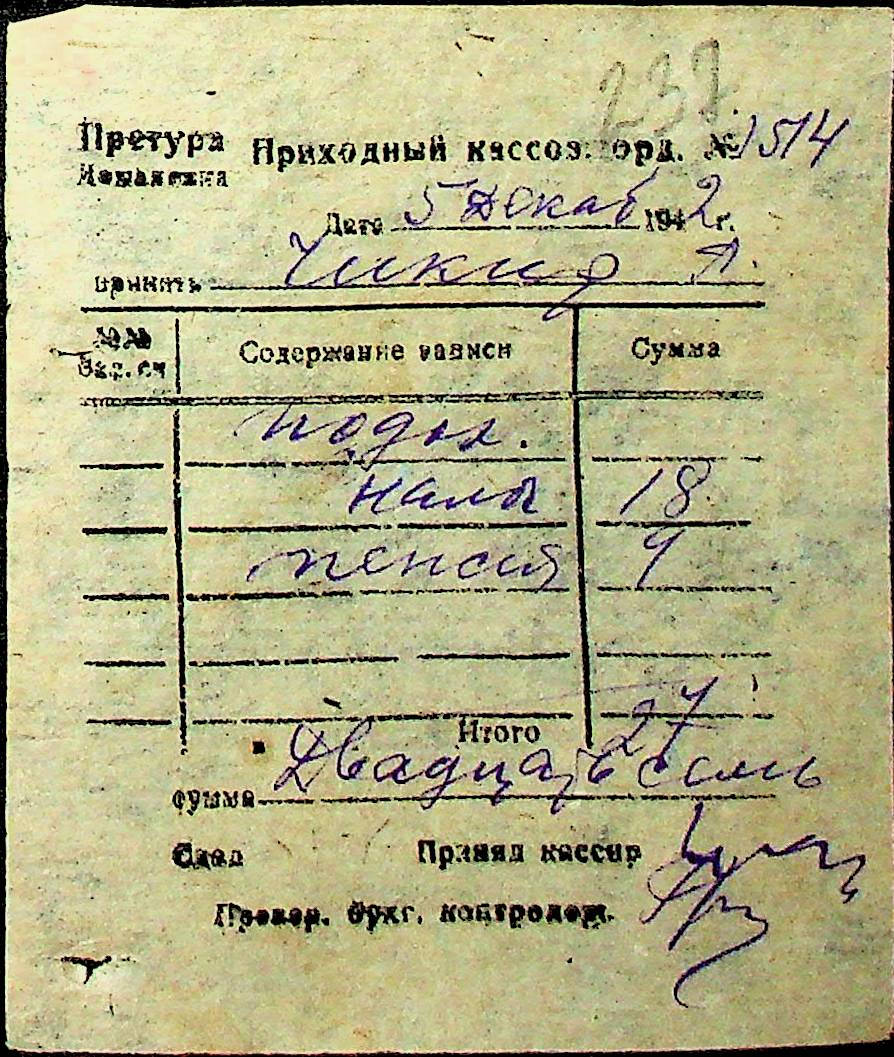 237
Претура Приходный кассов. орд. № 1514
Измаловна
Дата 5 Декаб 1942 г.
принять Чикид П.
№№ бух. сч Содержание записи Сумма
подох.
нало 18
пенсия 9
Итого 27
сумма Двадцать семь
Сдал Принял кассир
Провер. бухг. контролер.